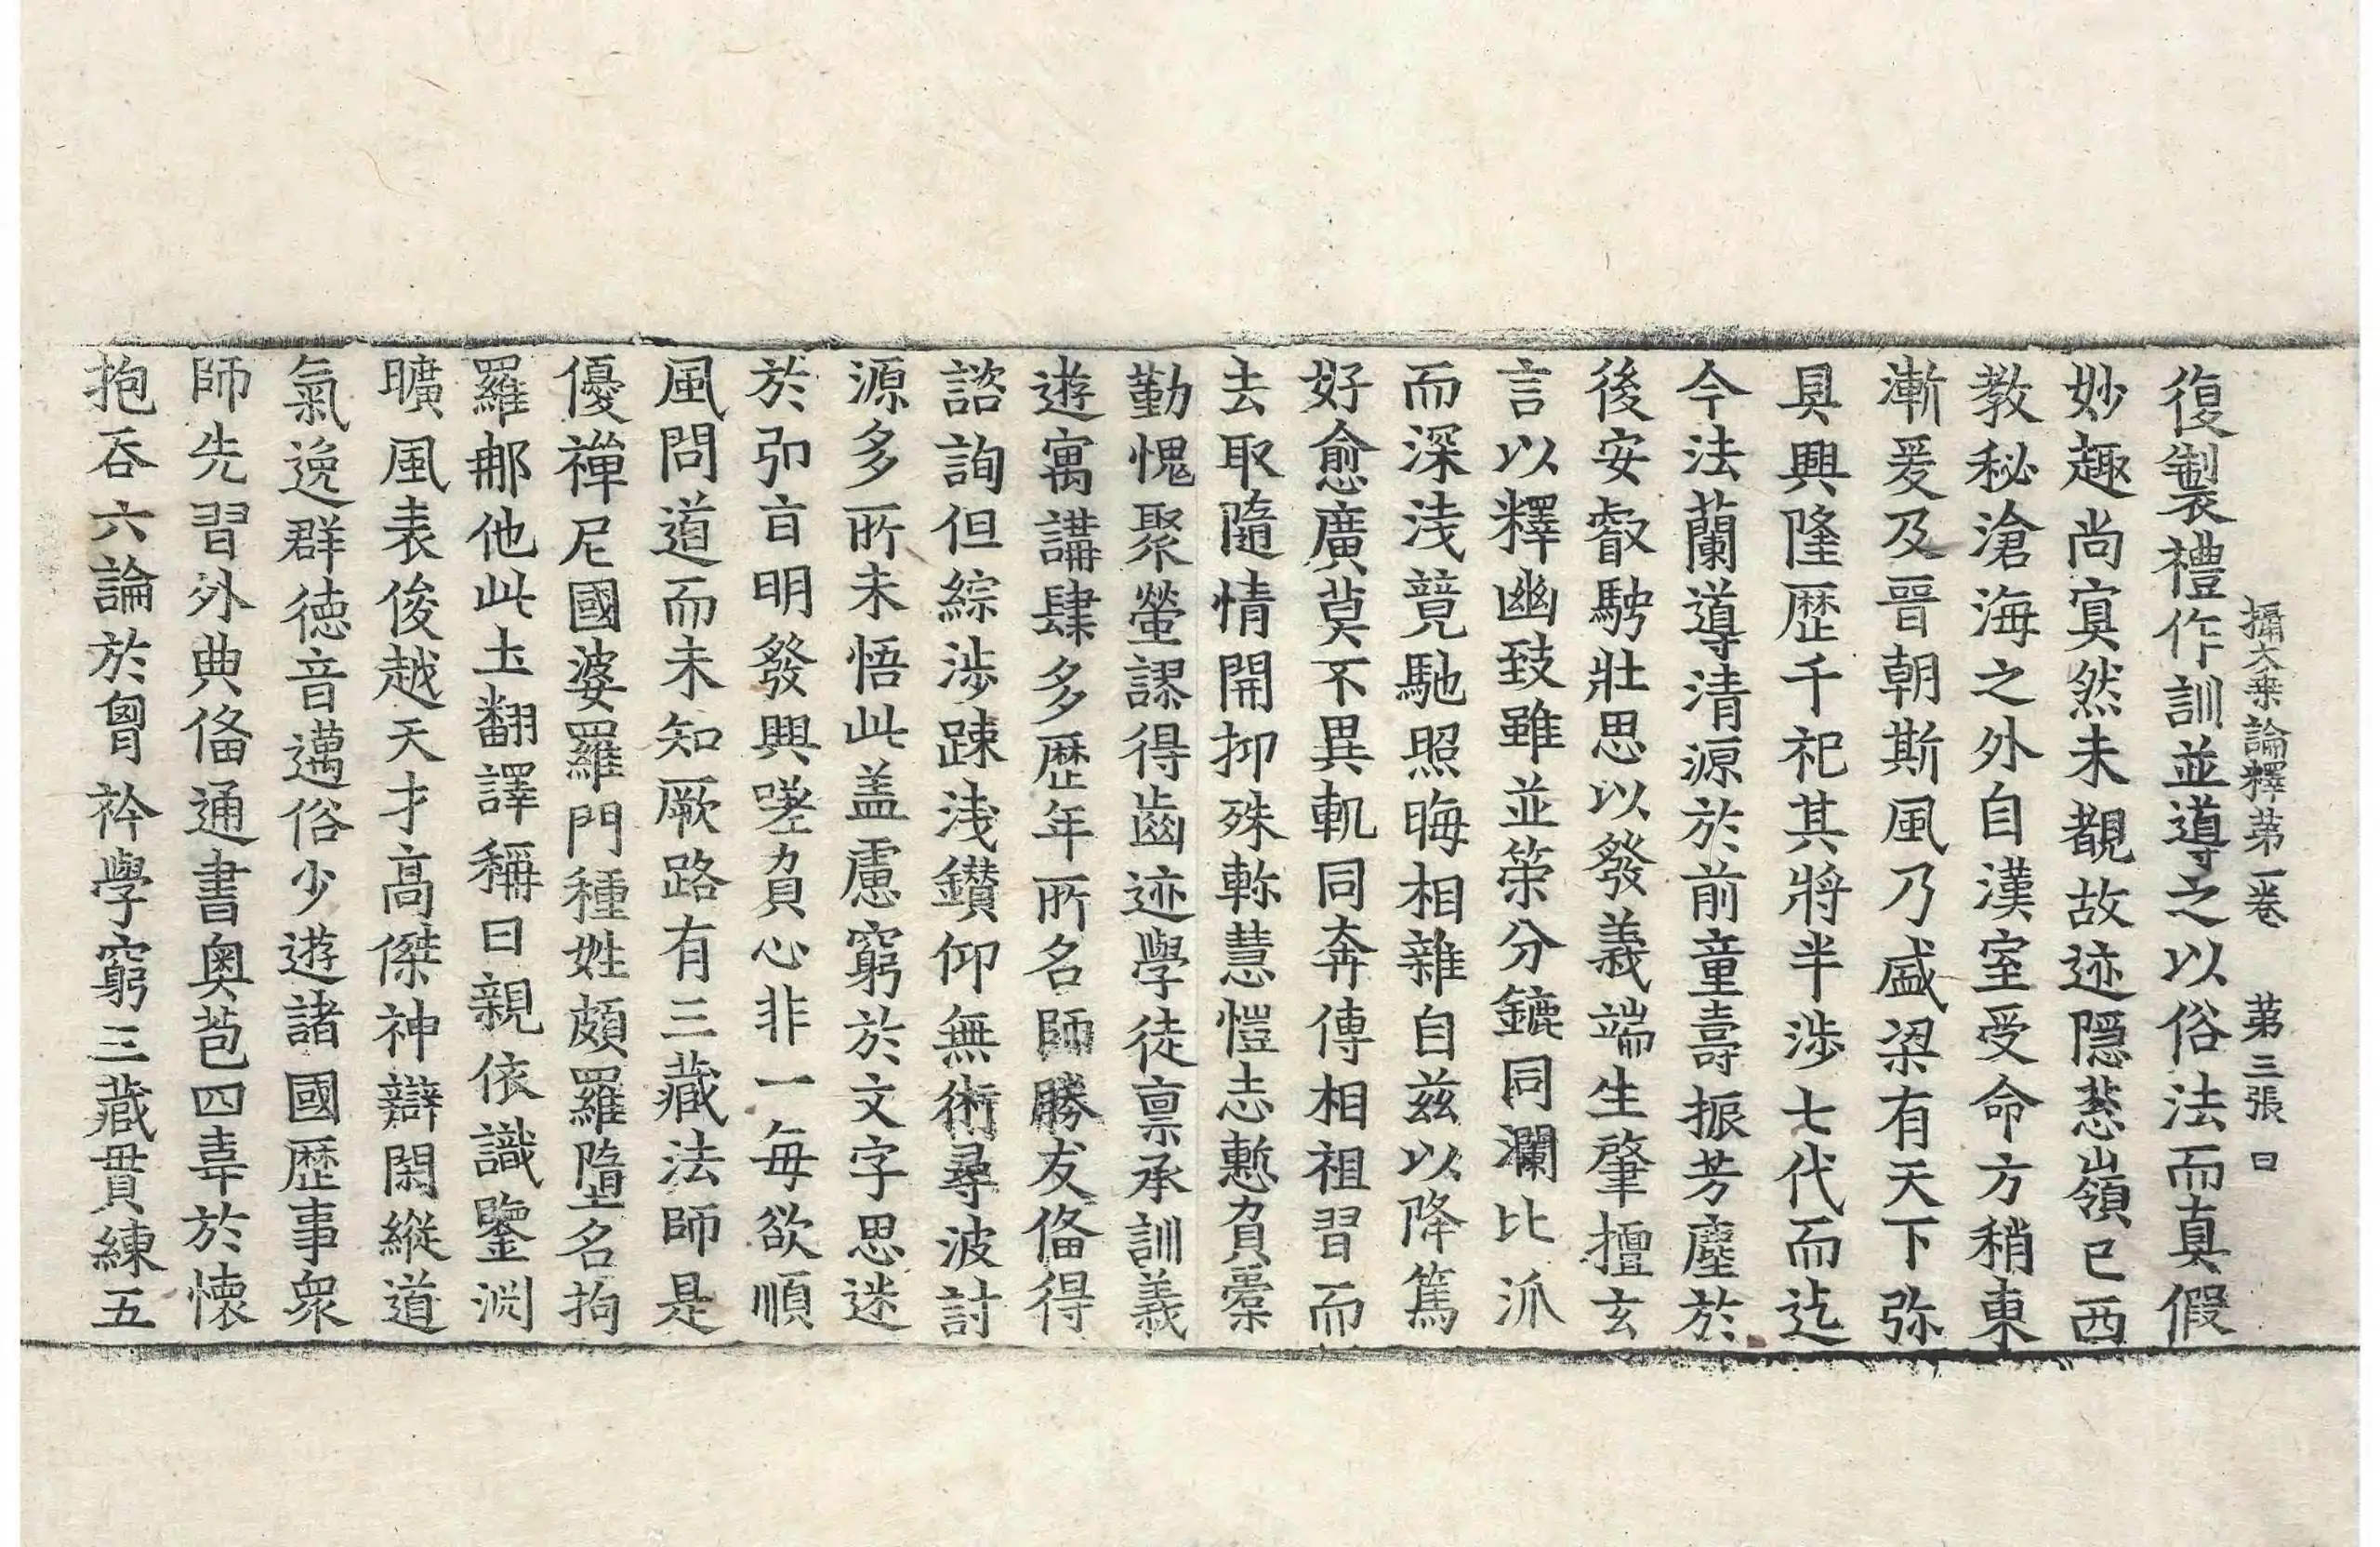 攝大乗論釋第一卷 第三張 曰
復製禮作訓並導之以俗法而真假
妙趣尚寞然未覩故迹隱葱嶺已西
教秘滄海之外自漢室受命方稍東
漸爰及晉朝斯風乃盛梁有天下弥
具興隆歴千祀其將半涉七代而迄
今法蘭導清源於前童壽振芳塵於
後安叡騁壯思以發義端生肇擅玄
言以釋幽致雖並策分鑣同瀾比派
而深淺競馳照晦相雜自兹以降篤
好愈廣莫不異軌同奔傳相祖習而
去取随情開抑殊軫慧愷志慙負槖
勤愧聚螢謬得齒迹學徒禀承訓義
遊寓講肆多歴年所名師勝友俻得
諮詢但綜涉踈淺鑚仰無術尋波討
源多所未悟此盖慮窮於文字思迷
於弘旨明發興嗟負心非一每欲順
風問道而未知厥路有三藏法師是
優禪尼國婆羅門種姓頗羅墮名拘
羅那他此土翻譯稱曰親依識鑒淵
曠風表俊越天才高傑神辯閑縱道
氣逸群徳音邁俗少遊諸國歴事衆
師先習外典俻通書奥苞四韋於懷
抱吞六論於胷衿學窮三藏貫練五